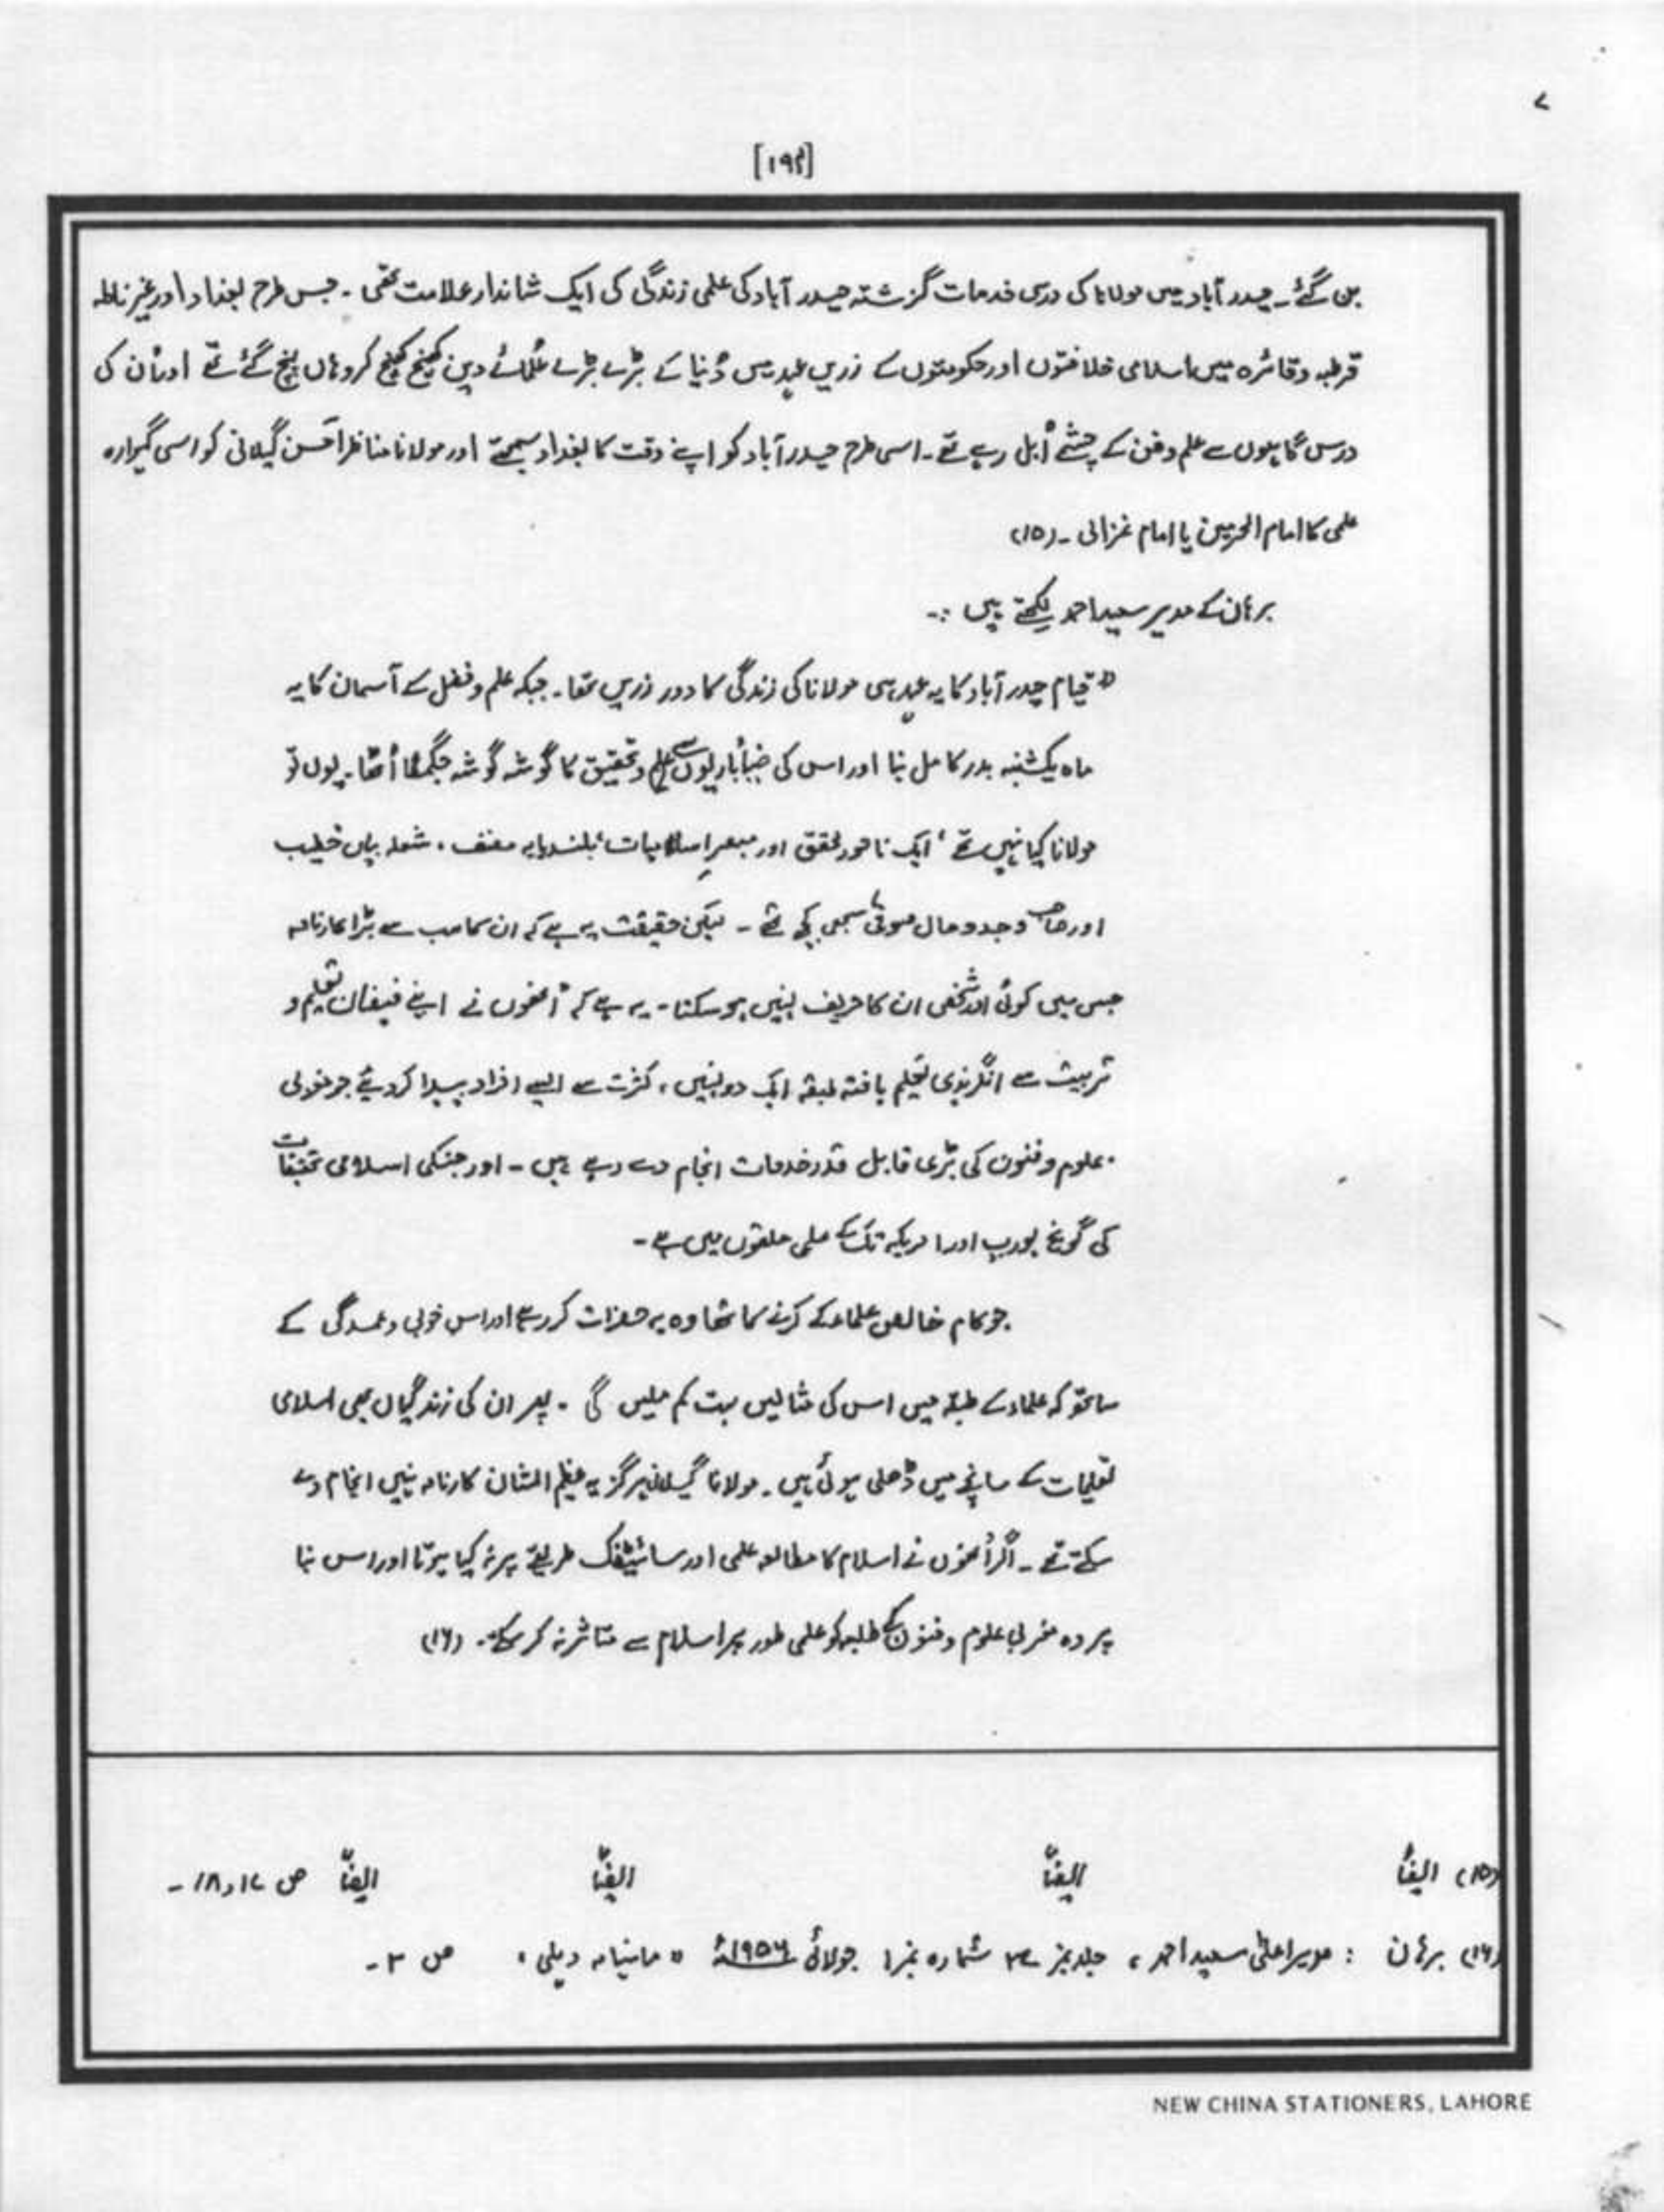 [۱۹۴]
بن گئے۔ حیدر آباد میں مولانا کی درسی خدمات گزشتہ حیدر آباد کی علمی زندگی کی ایک شاندار علامت تھی۔ جس طرح بغداد اور غرناطہ
قرطبہ وقائرہ میں اسلامی خلافتوں اور حکومتوں کے زریں عہد میں دُنیا کے بڑے بڑے عُلمائے دین کھینچ کھینچ کر وہاں پہنچ گئے تھے اور اُن کی
درس گاہوں سے علم وفن کے چشمے اُبل رہے تھے۔ اسی طرح حیدر آباد کو اپنے وقت کا بغداد سمجھئے اور مولانا مناظر احسن گیلانی کو اسی گہوارہ
علمی کا امام الحرمین یا امام غزالی۔ (۱۵)
برہان کے مدیر سعید احمد لکھتے ہیں :۔
" قیام حیدر آباد کا یہ عہد ہی مولانا کی زندگی کا دور زریں تھا۔ جبکہ علم وفضل کے آسمان کا یہ
ماہ یکشنبہ بدر کامل بنا اور اس کی ضیأباریوں سے علم وتحقیق کا گوشہ گوشہ جگمگا اُٹھا۔ یوں تو
مولانا کیا نہیں تھے ' ایک نامور محقق اور مبصر اسلامیات ' بلند پایہ مصنف ، شعلہ بیاں خطیب
اور صاحب وجد وحال صوفی سبھی کچھ تھے ۔ لیکن حقیقت یہ ہے کہ ان کا سب سے بڑا کارنامہ
جس میں کوئی اور شخص ان کا حریف نہیں ہو سکتا ۔ یہ ہے کہ اُنھوں نے اپنے فیضان تعلیم و
تربیت سے انگریزی تعلیم یافتہ طبقہ ایک دو نہیں ، کثرت سے ایسے افراد پیدا کر دیئے جو مغربی
علوم وفنون کی بڑی قابل قدر خدمات انجام دے رہے ہیں ۔ اور جنکی اسلامی تحقیقات
کی گونج یورپ اور امریکہ تک کے علمی حلقوں میں ہے ۔
جو کام خالص علماء کے کرنے کا تھا وہ یہ حضرات کر رہے اور اس خوبی وعمدگی کے
ساتھ کہ علماء کے طبقہ میں اس کی مثالیں بہت کم ملیں گی ۔ پھر ان کی زندگیاں بھی اسلامی
تعلیمات کے سانچے میں ڈھلی ہوئی ہیں ۔ مولانا گیلانی ہرگز یہ عظیم الشان کارنامہ نہیں انجام دے
سکتے تھے ۔ اگر اُنھوں نے اسلام کا مطالعہ علمی اور سائینٹفک طریقے پر نہ کیا ہوتا اور اس بنا
پر وہ مغربی علوم وفنون کے طلبہ کو علمی طور پر اسلام سے متاثر نہ کر سکتے۔ (۱۶)
(۱۵) ایضاً ایضاً ایضاً ایضاً ص ۱۷ و ۱۸ ۔
(۱۶) برہان : مدیر اعلیٰ سعید احمد ، جلد نمبر ۳۷ شمارہ نمبر ۱ جولائی ۱۹۵۶ء " ماہنامہ دہلی ، ص ۳ ۔
NEW CHINA STATIONERS, LAHORE